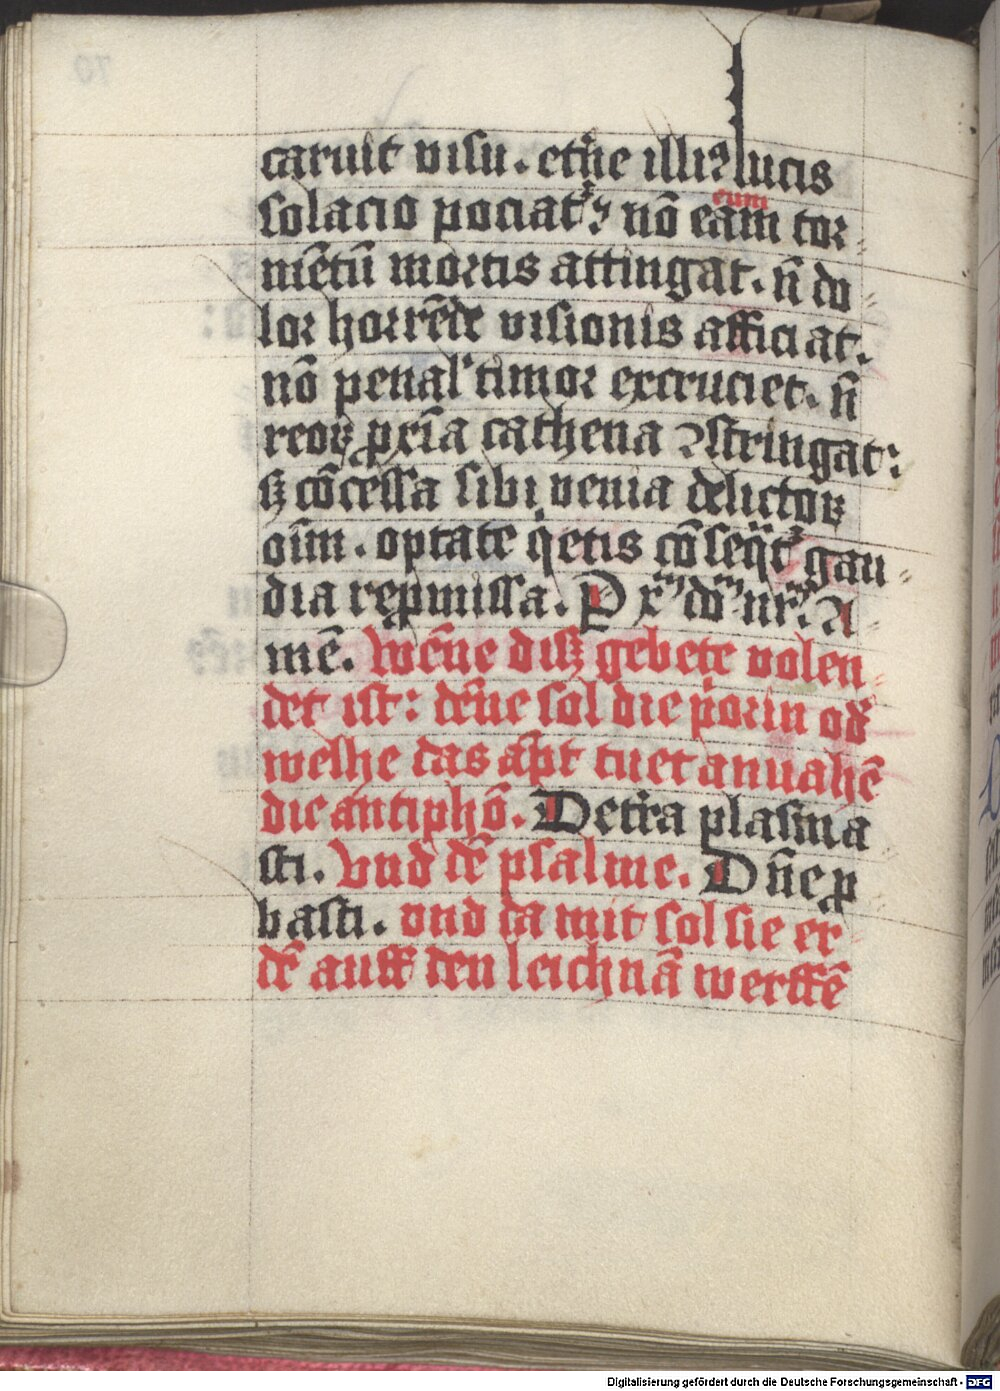 caruit visu. et̄ne illiꝰ lucis
solacio pociat̉ᷣ nō eam tor
eum
mētū mortis attingat. n̄ do
lor horrēde visionis afficiat.
nō penal' timor excruciet. n̄
reoꝝ ꝓxīa cathena ꝯstringat:
sꝫ cōcessa sibi venia delictoꝝ
oīm. optate q̇etis cōseqᷓt̉ gau
dia repmissa. P xͫ dōͫ nrͫ. A
mē. Wēne disz gebete volen
det ist: dēne sol die p̈orin od̉
welhe das āpt tuet anuahē
die antiphō. De tr̄a plasma
sti. Vnd dē psalme. Dn̄e ꝓ
basti. vnd da mit sol sie er
dē auff den leichnā werffē
70
Digitalisierung gefördert durch die Deutsche Forschungsgemeinschaft - DFG